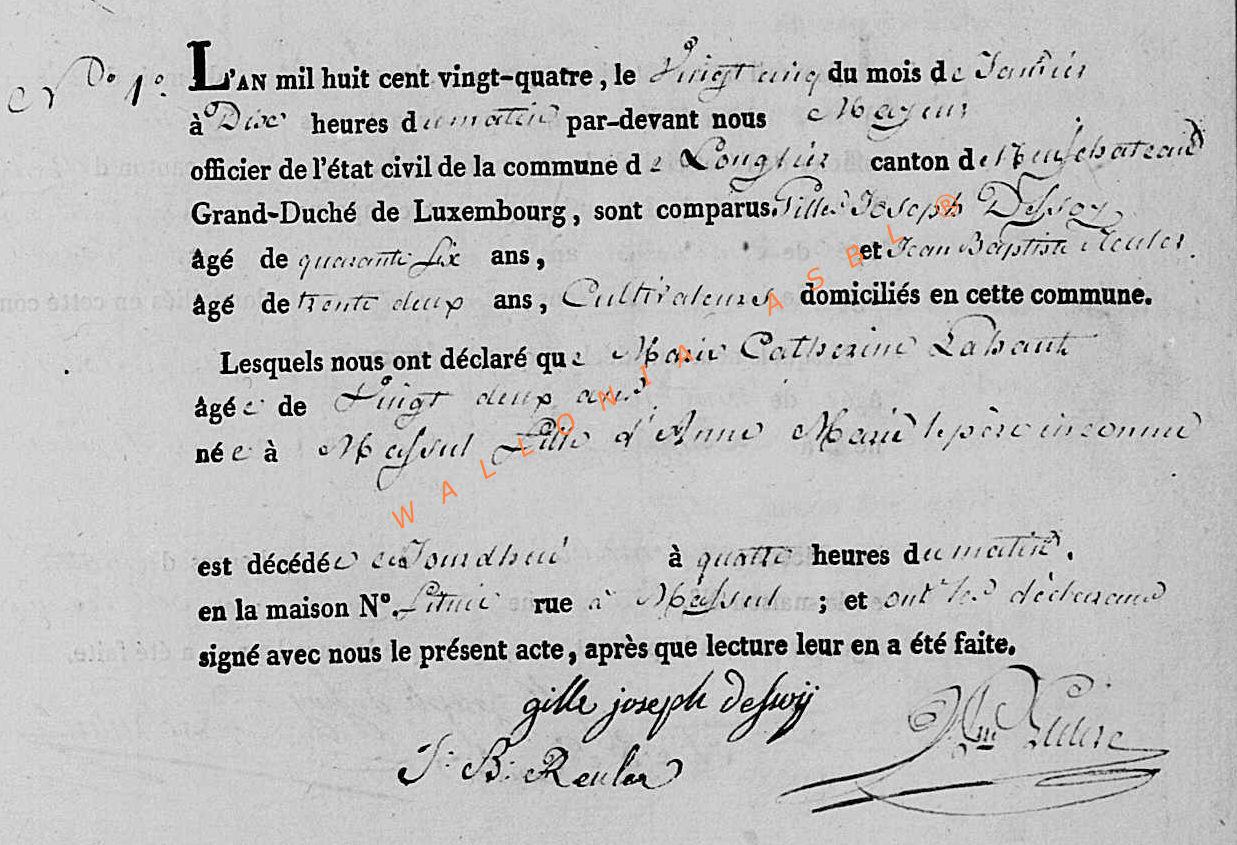 No 1o L'AN mil huit cent vingt-quatre, le Vingt cinq du mois de Janvier
à Dix heures du matin par-devant nous Mayeur
officier de l'état civil de la commune de Longlier canton de Neufchateau
Grand-Duché de Luxembourg, sont comparus Gille Joseph Dessoy
âgé de quarante six ans, et Jean Baptiste Reuler
âgé de trente deux ans, Cultivateurs domiciliés en cette commune.
Lesquels nous ont déclaré que Marie Catherine Lahaut
âgée de Vingt deux ans
née à Massul fille d'Anne Marie le père inconnu
est décédée cejourdhui à quatre heures du matin.
en la maison No. située rue à Massul ; et ont les déclarans
signé avec nous le présent acte, après que lecture leur en a été faite.
gille joseph dessoÿ
J: B: Reuler
WALLONIA ASBL ®